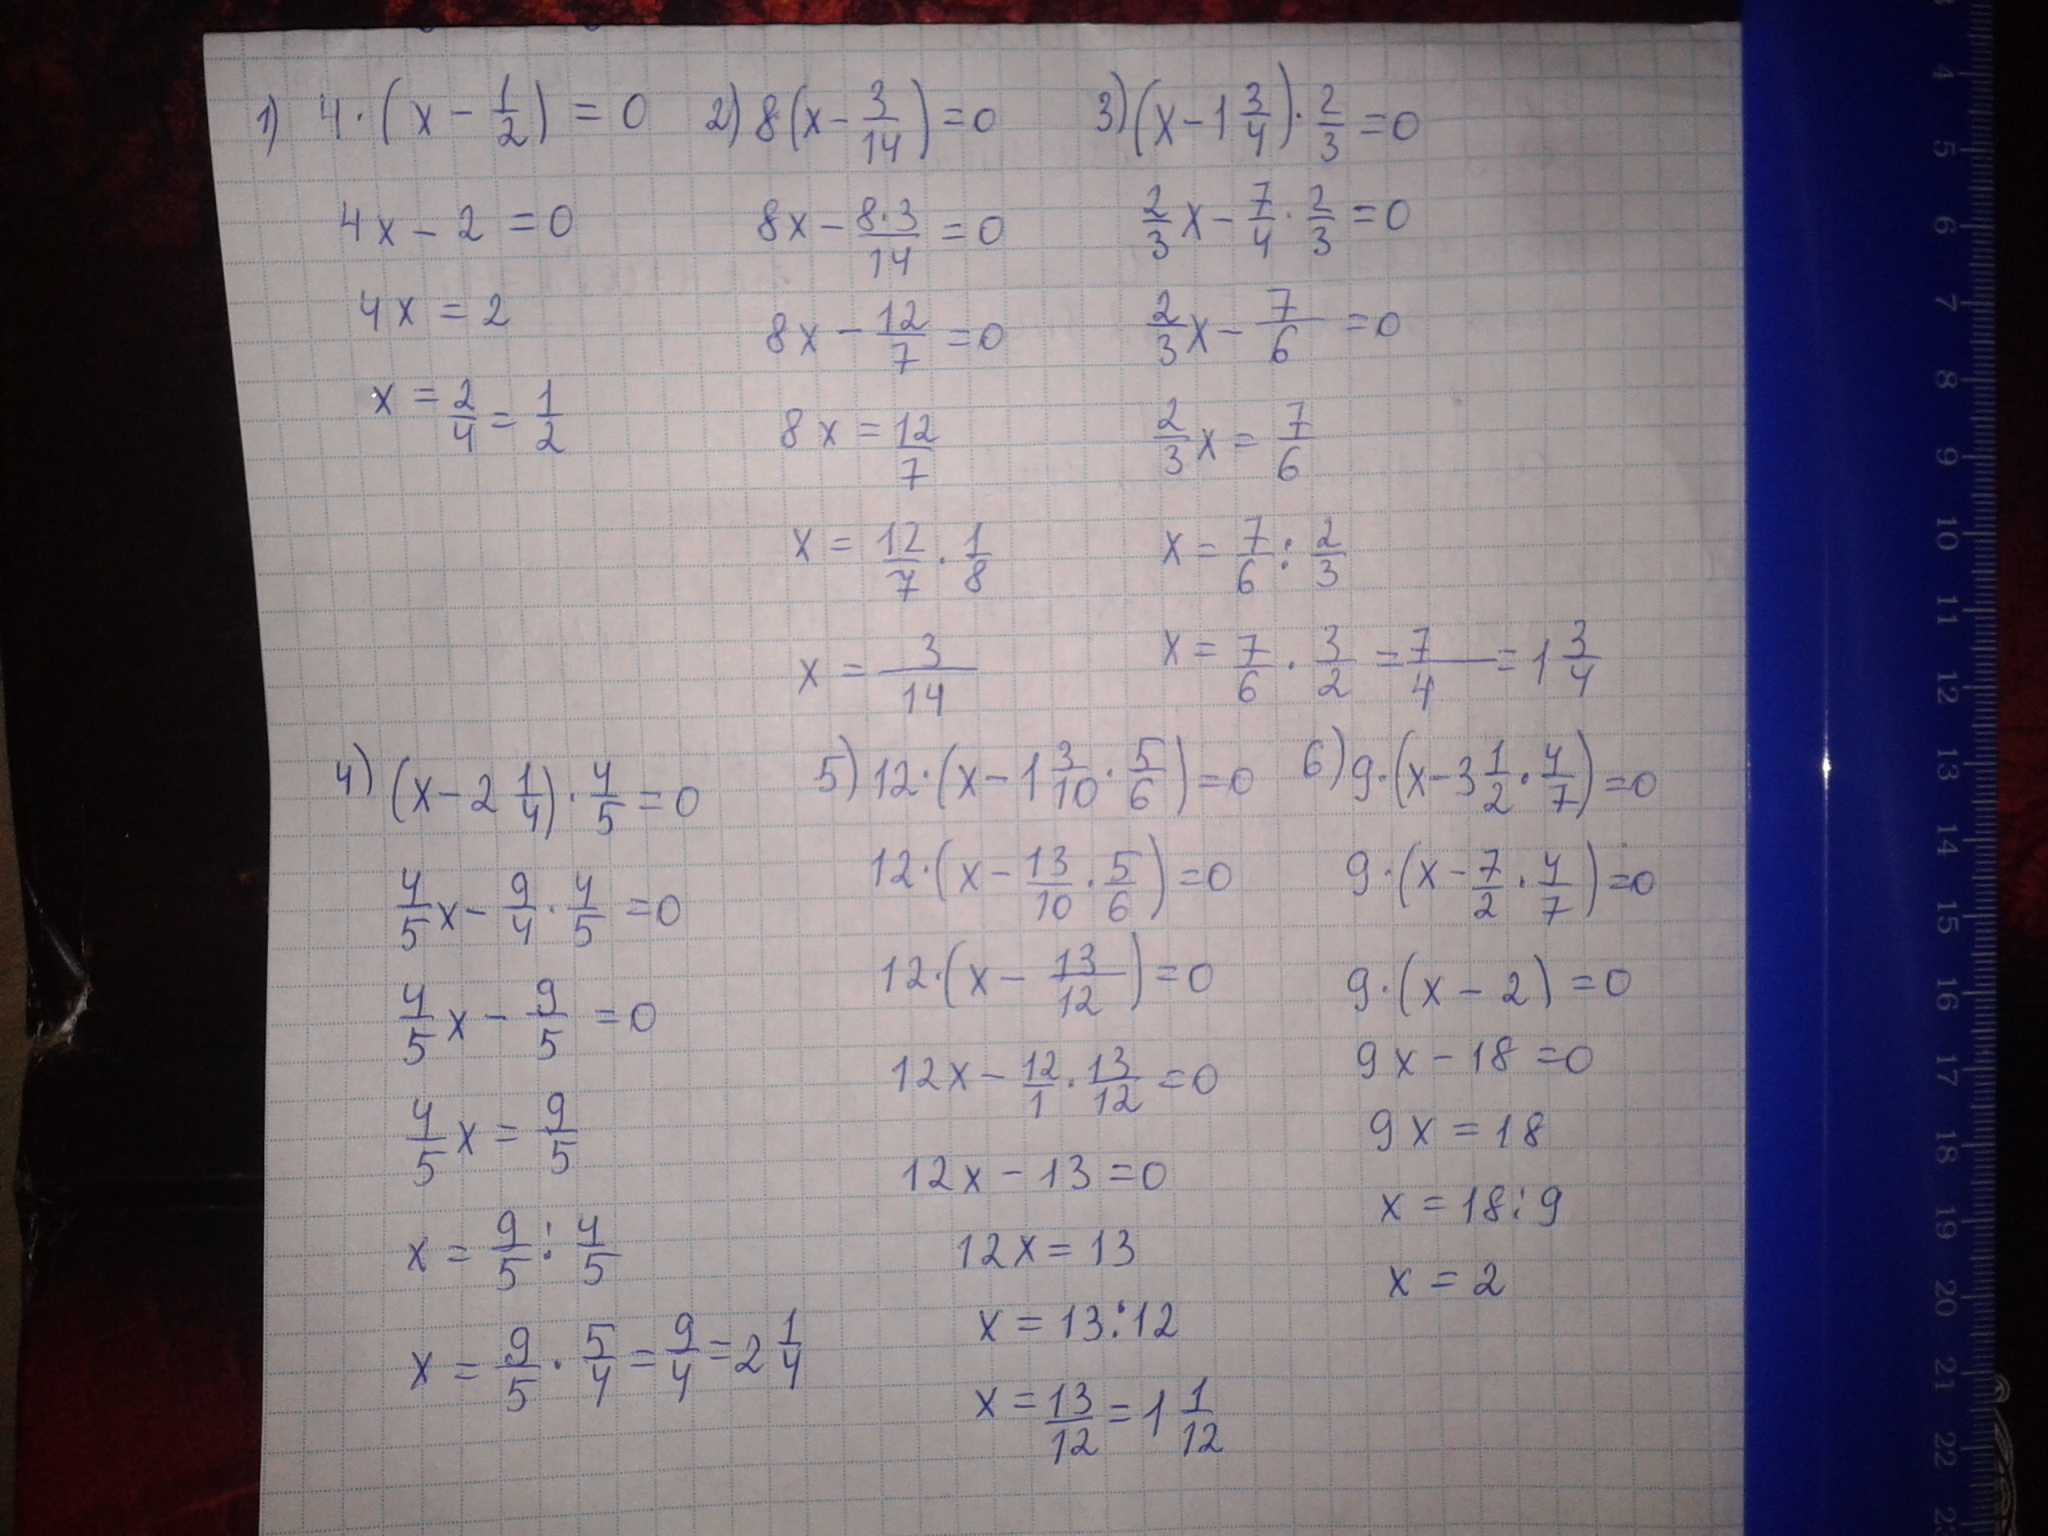 1) 4·(x - 1/2) = 0
4x - 2 = 0
4x = 2
x = 2/4 = 1/2
2) 8(x - 3/14) = 0
8x - 8·3/14 = 0
8x - 12/7 = 0
8x = 12/7
x = 12/7 · 1/8
x = 3/14
3) (x - 1 3/4) · 2/3 = 0
2/3 x - 7/4 · 2/3 = 0
2/3 x - 7/6 = 0
2/3 x = 7/6
x = 7/6 : 2/3
x = 7/6 · 3/2 = 7/4 = 1 3/4
4) (x - 2 1/4) · 4/5 = 0
4/5 x - 9/4 · 4/5 = 0
4/5 x - 9/5 = 0
4/5 x = 9/5
x = 9/5 : 4/5
x = 9/5 · 5/4 = 9/4 = 2 1/4
5) 12·(x - 1 3/10 · 5/6) = 0
12·(x - 13/10 · 5/6) = 0
12·(x - 13/12) = 0
12x - 12/1 · 13/12 = 0
12x - 13 = 0
12x = 13
x = 13:12
x = 13/12 = 1 1/12
6) 9·(x - 3 1/2 · 4/7) = 0
9·(x - 7/2 · 4/7) = 0
9·(x - 2) = 0
9x - 18 = 0
9x = 18
x = 18:9
x = 2
4
5
6
7
8
9
10
11
12
13
14
15
16
17
18
19
20
21
22